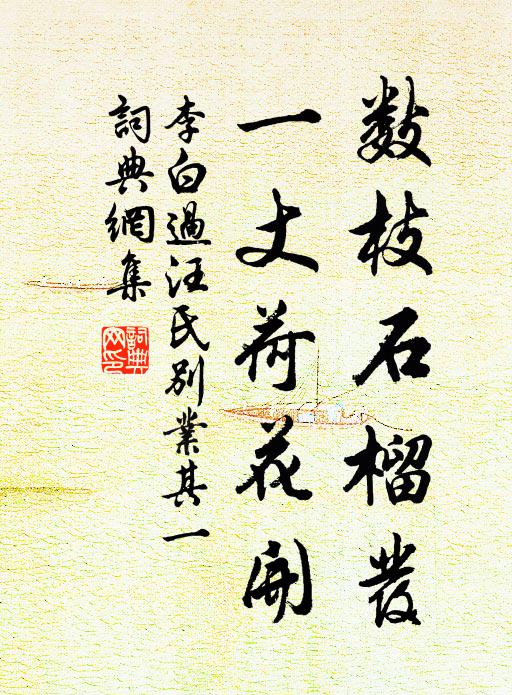 數枝石榴發
一丈荷花開
李白過汪氏別業其一
詞典網集
詞典
网印